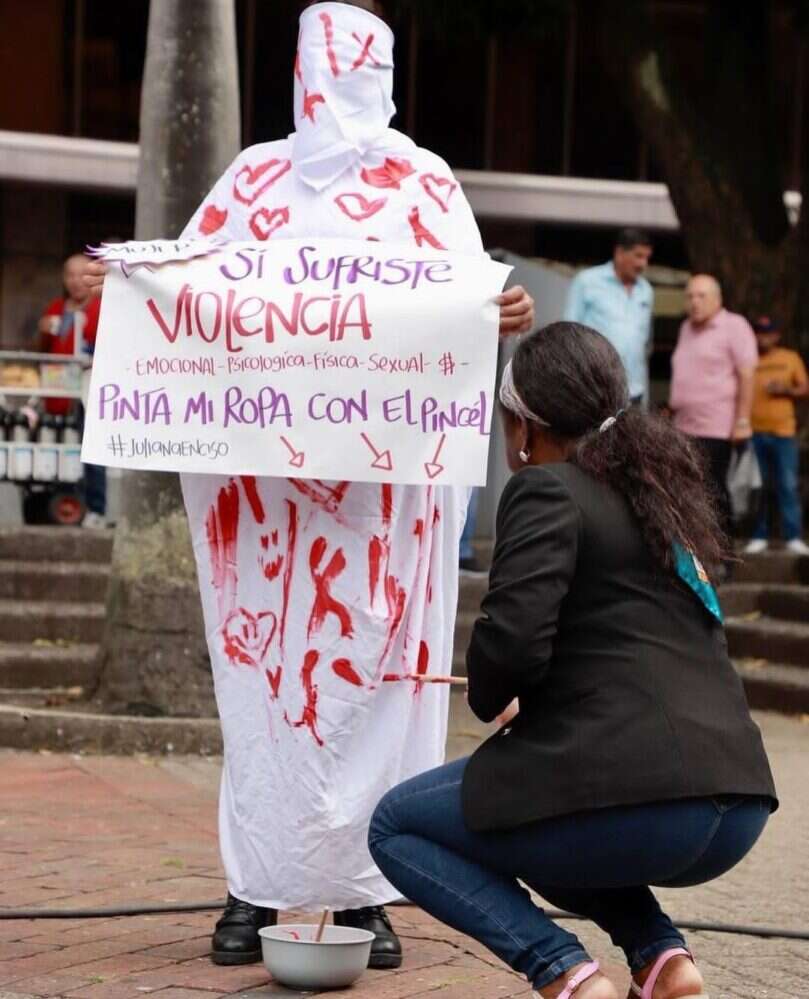 Mujer
Si Sufriste
Violencia
- Emocional - Psicologica - Física - Sexual - $ -
Pinta mi ropa con el pincél
#JulianaEnciso